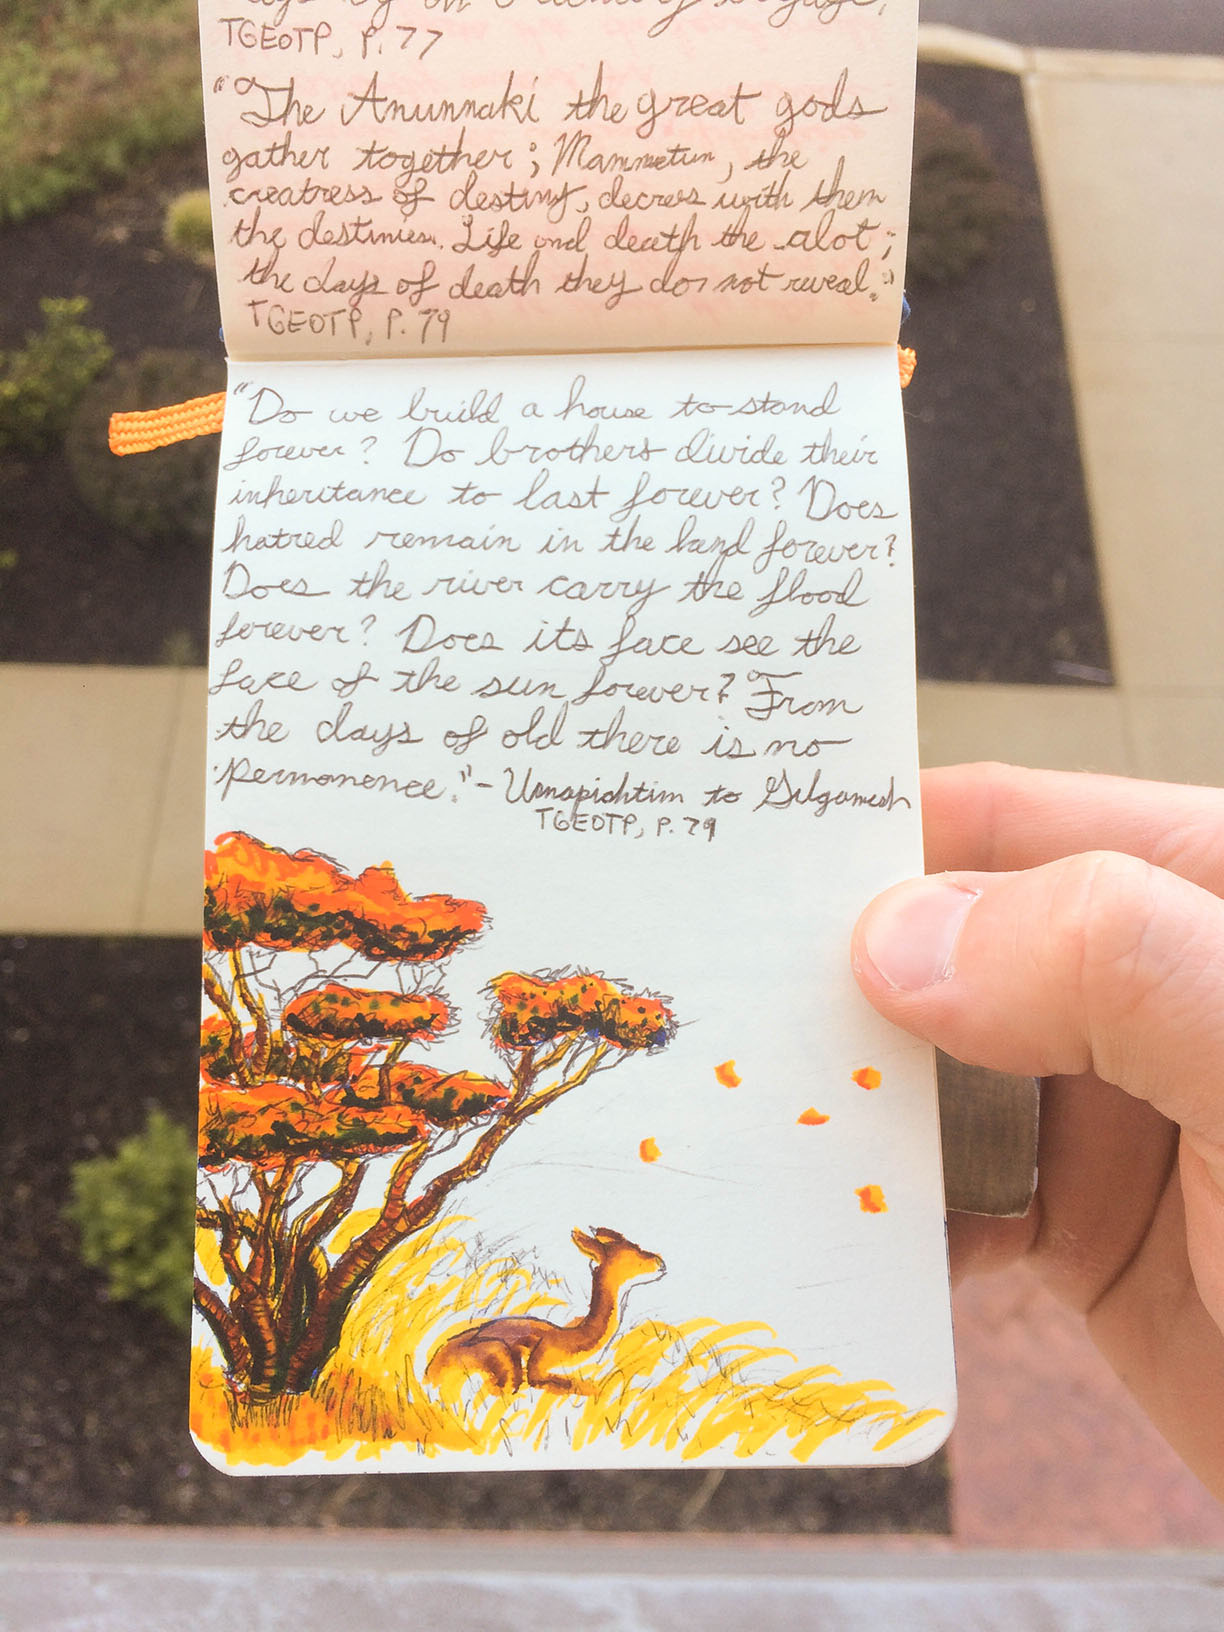 TGEOTP, P. 77
"The Anunnaki the great gods
gather together; Mammetun, the
creatress of destiny, decrees with them
the destinies. Life and death the alot;
the days of death they do not reveal."
TGEOTP, P. 79
"Do we build a house to stand
forever? Do brothers divide their
inheritance to last forever? Does
hatred remain in the land forever?
Does the river carry the flood
forever? Does its face see the
face of the sun forever? From
the days of old there is no
permanence." - Utnapishtim to Gilgamesh
TGEOTP, P. 79